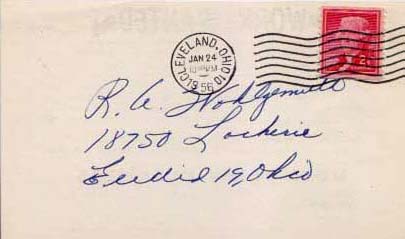 CLEVELAND, OHIO
JAN 24
1956
2¢
R. A. Wohlgemuth
18750 Lockerie
Euclid 19, Ohio